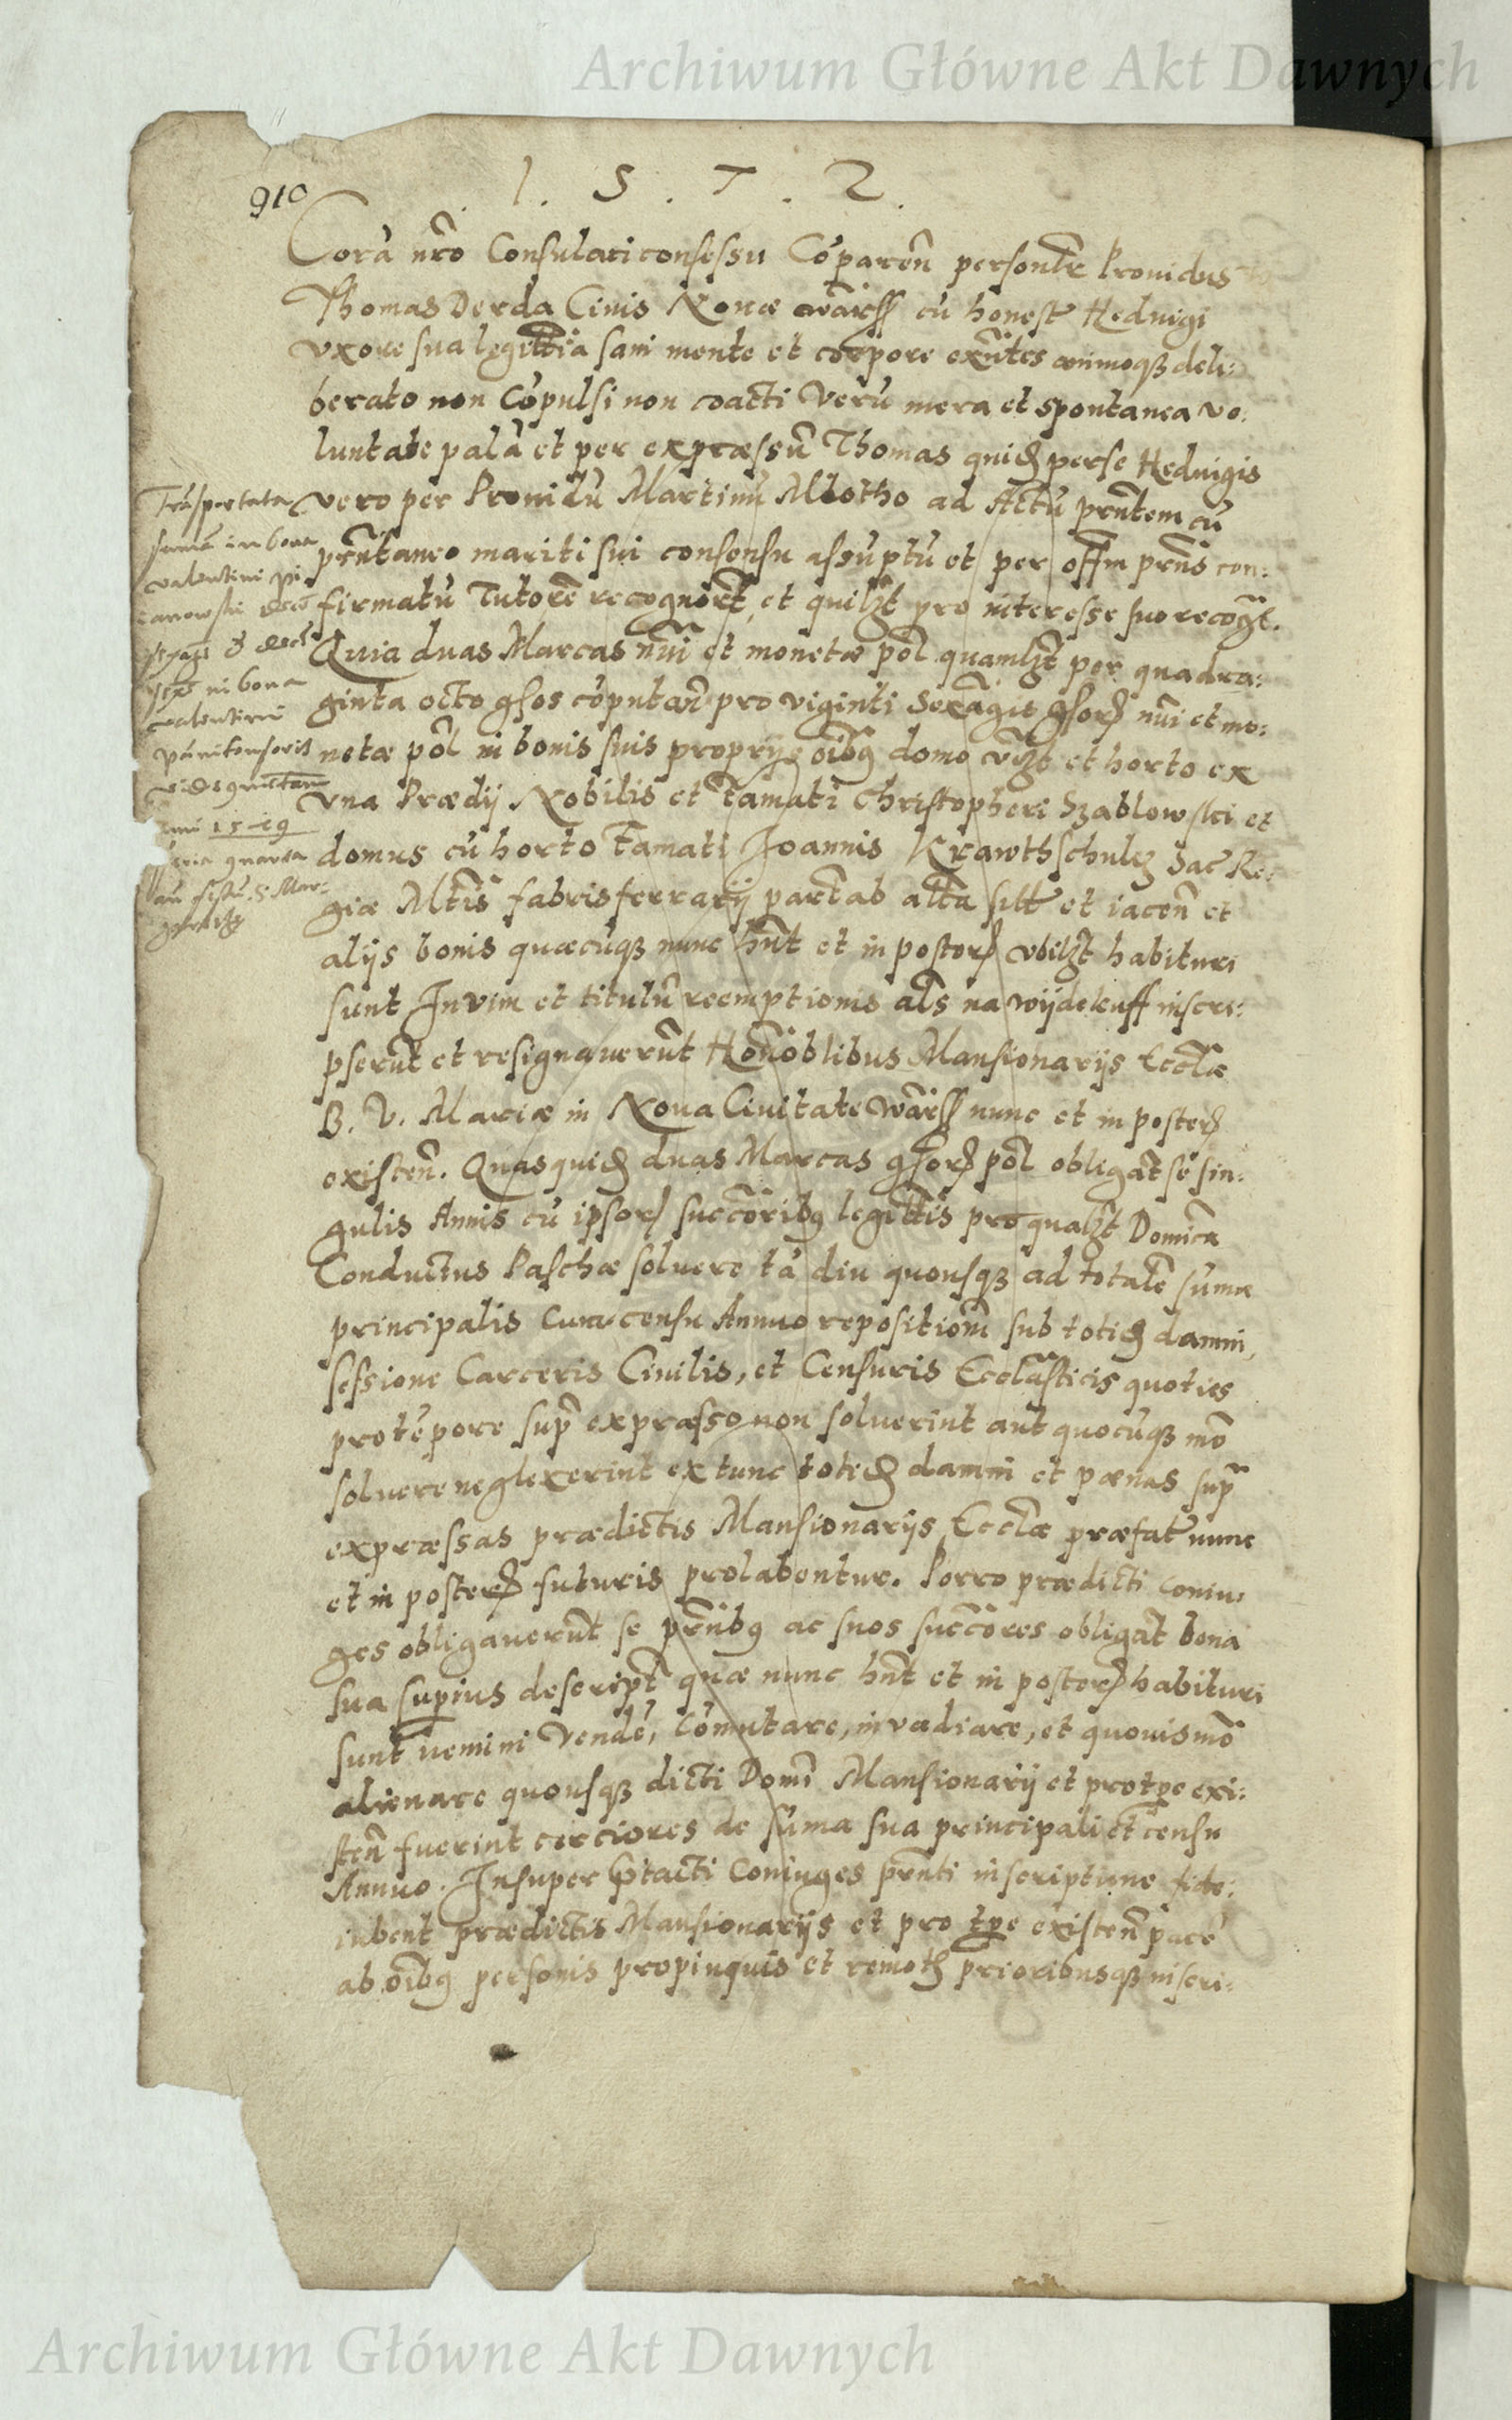 Archiwum Główne Akt Dawnych
910
1 . 5 . 7 . 2 .
Corã nr̃o Consulari consessu Cõparen̄ personlr̄ Prouidus
Thomas Derda Ciuis Nouæ warss cũ honest Heduigi
vxore sua legittīa sani mente et corpore exn̄tes animoqȝ deli:
berato non Cõpulsi non coacti Verũ mera et spontanea vo:
luntate palã et per expræssũ Thomas quid perse Heduigis
vero per Prouidũ Martinũ Mlotho ad Actũ prn̄tem cũ
prn̄taneo mariti sui consensu assũptũ et per offm̄ prn̄s con:
firmatũ Tutorē recognort̄, et quilȝt pro interesse suo recogt̄.
Quia duas Marcas nūi et monetæ pol̄ quamlȝt per quadra:
ginta octo gsos cõputan̄ pro viginti Sexagis gsorȝ nūi et mo:
netæ pol̄ in bonis suis proprijs oib9 domo vȝt et horto ex
vna Prædij Nobilis et famati Christopheri Szablowski et
domus cũ horto Famati Joannis Krawthschulcz Sac Re:
giæ Mtīs fabris ferrarij part̄ ab alt̄a sitt et iacen̄ et
alijs bonis quæcũqȝ nunc hn̄t et in posterȝ vbilȝt habituri
sunt In vim et titulũ reemptionis al̄s na wijdeleuff inscri:
pserūt et resignauerūt Hon̄oblibus Mansionarijs Eccl̄æ
B. V. Mariæ in Noua Ciuitate Warss nunc et in posterȝ
existen̄. Quas quid duas Marcas gsorȝ pol̄ obligāt se sin:
gulis Annis cũ ipsorȝ succōrib9 legittīs pro qualȝt Domīca
Conductus Paschæ soluere tã diu quousqȝ ad totalē sũmæ
principalis cum censu Annuo repositionī sub totid damni,
sessione Carceris Ciuilis, et Censuris Eccl̄asticis quoties
pro tẽpore supr̄ expræsso non soluerint aut quocũqȝ mō
soluere neglexerint ex tunc totid damni et pænas supr̄
expræssas prædictis Mansionarijs Eccl̄æ præfat nunc
et in posterȝ futuris prolabentur. Porro prædicti Coniu:
ges obligauerūt se prn̄tib9 ac suos succōres obligāt bona
sua superius descript̄ quæ nunc hn̄t et in posterȝ habituri
sunt nemini Vendē, Cõmutare, inuadiare, et quouismō
alienare quousqȝ dicti Domī Mansionarij et pro tp̄e exi:
sten̄ fuerint certiores de sũma sua principali et censu
Annuo. Insuper ptacti Coniuges prn̄ti inscriptione fide:
iubent prædictis Mansionarijs et pro tp̄e existen̄ pacē
ab oīb9 personis propinquis et remotȝ prioribusqȝ inscri:
Trãsportata
sumã in bona
valentini
Itẽ in bona
valentini
vide quietam
15
feria quarta
Archiwum Główne Akt Dawnych